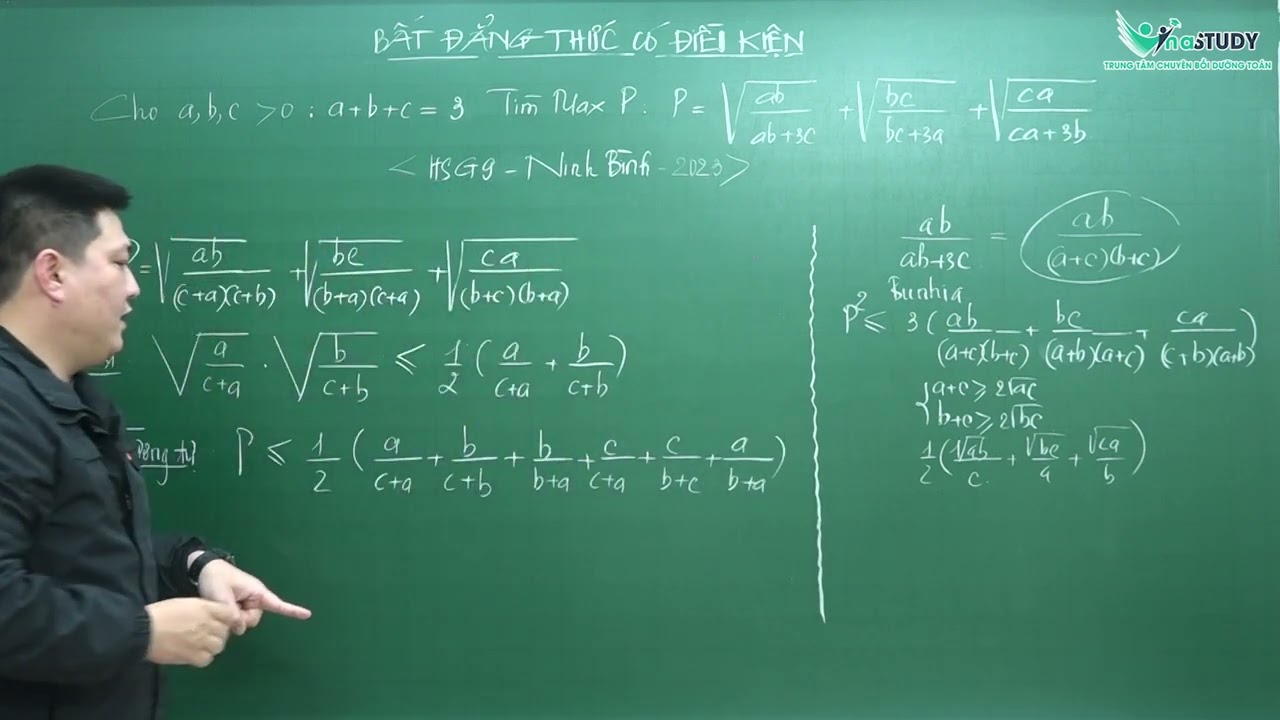 BẤT ĐẲNG THỨC CÓ ĐIỀU KIỆN
VinaSTUDY
TRUNG TÂM CHUYÊN BỒI DƯỠNG TOÁN
Cho a,b,c >0 : a+b+c = 3 Tìm Max P. P = √(ab/(ab+3c)) + √(bc/(bc+3a)) + √(ca/(ca+3b))
< HSG9 - Ninh Bình - 2023 >
P = √(ab/((c+a)(c+b))) + √(bc/((b+a)(c+a))) + √(ca/((b+c)(b+a)))
√(a/(c+a)) . √(b/(c+b)) ≤ 1/2 (a/(c+a) + b/(c+b))
Tương tự: P ≤ 1/2 (a/(c+a) + b/(c+b) + b/(b+a) + c/(c+a) + c/(b+c) + a/(b+a))
ab/(ab+3c) = ab/((a+c)(b+c))
Bunhia
P² ≤ 3 (ab/((a+c)(b+c)) + bc/((a+b)(a+c)) + ca/((c+b)(a+b)))
{ a+c ≥ 2√ac
{ b+c ≥ 2√bc
1/2 (√ab/c + √bc/a + √ca/b)